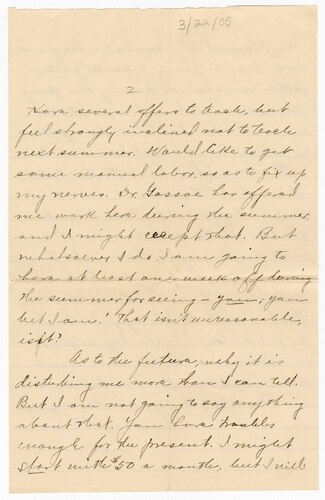 3/22/05
2
Have several offers to teach, but
feel strongly inclined not to teach
next summer. Would like to get
some manual labor, so as to fix up
my nerves. Dr. Gossae has offered
me work here during the summer
and I might accept that. But
whatsoever I do, I am going to
have at least one week off during
the summer for seeing – you; you
bet I am! That isn't unreasonable,
is it?
As to the future, why it is
disturbing me more than I can tell.
But I am not going to say anything
about that. You have troubles
enough for the present. I might
start with $50 a months, but I will